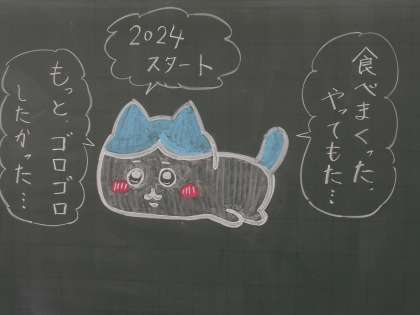 2024
スタート
食べまくった、
やってもた…
もっと、ゴロゴロ
したかった…